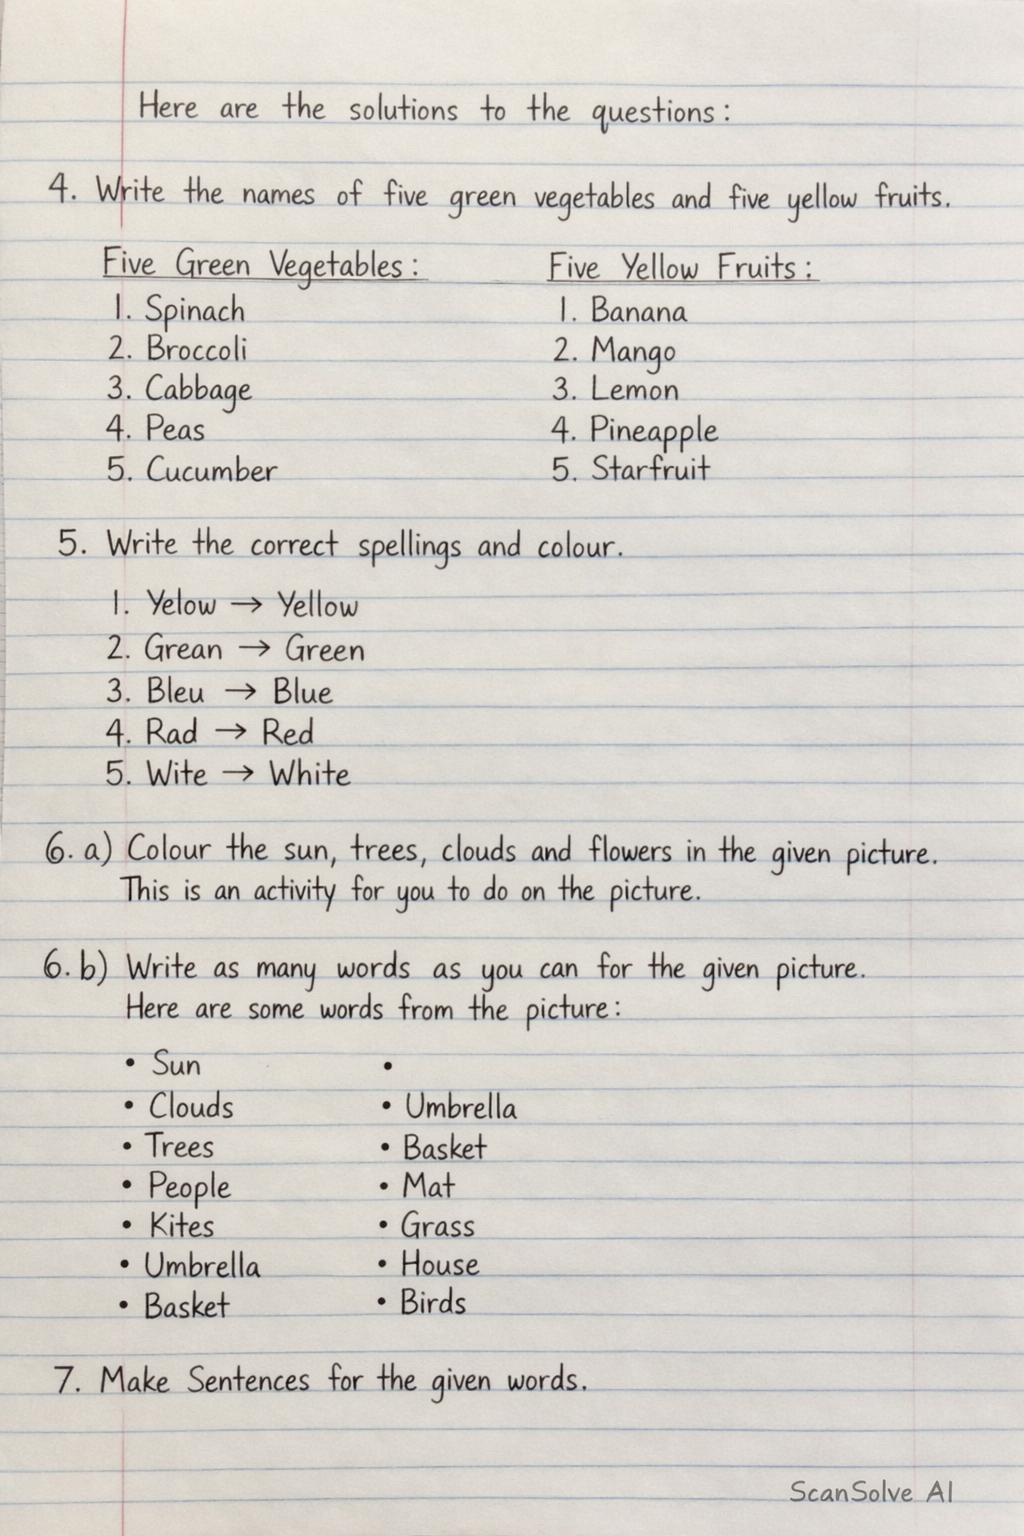 Here are the solutions to the questions:
4. Write the names of five green vegetables and five yellow fruits.
Five Green Vegetables:
1. Spinach
2. Broccoli
3. Cabbage
4. Peas
5. Cucumber
Five Yellow Fruits:
1. Banana
2. Mango
3. Lemon
4. Pineapple
5. Starfruit
5. Write the correct spellings and colour.
1. Yelow → Yellow
2. Grean → Green
3. Bleu → Blue
4. Rad → Red
5. Wite → White
6. a) Colour the sun, trees, clouds and flowers in the given picture.
This is an activity for you to do on the picture.
6. b) Write as many words as you can for the given picture.
Here are some words from the picture:
• Sun
• Clouds
• Trees
• People
• Kites
• Umbrella
• Basket
•
• Umbrella
• Basket
• Mat
• Grass
• House
• Birds
7. Make Sentences for the given words.
ScanSolve AI